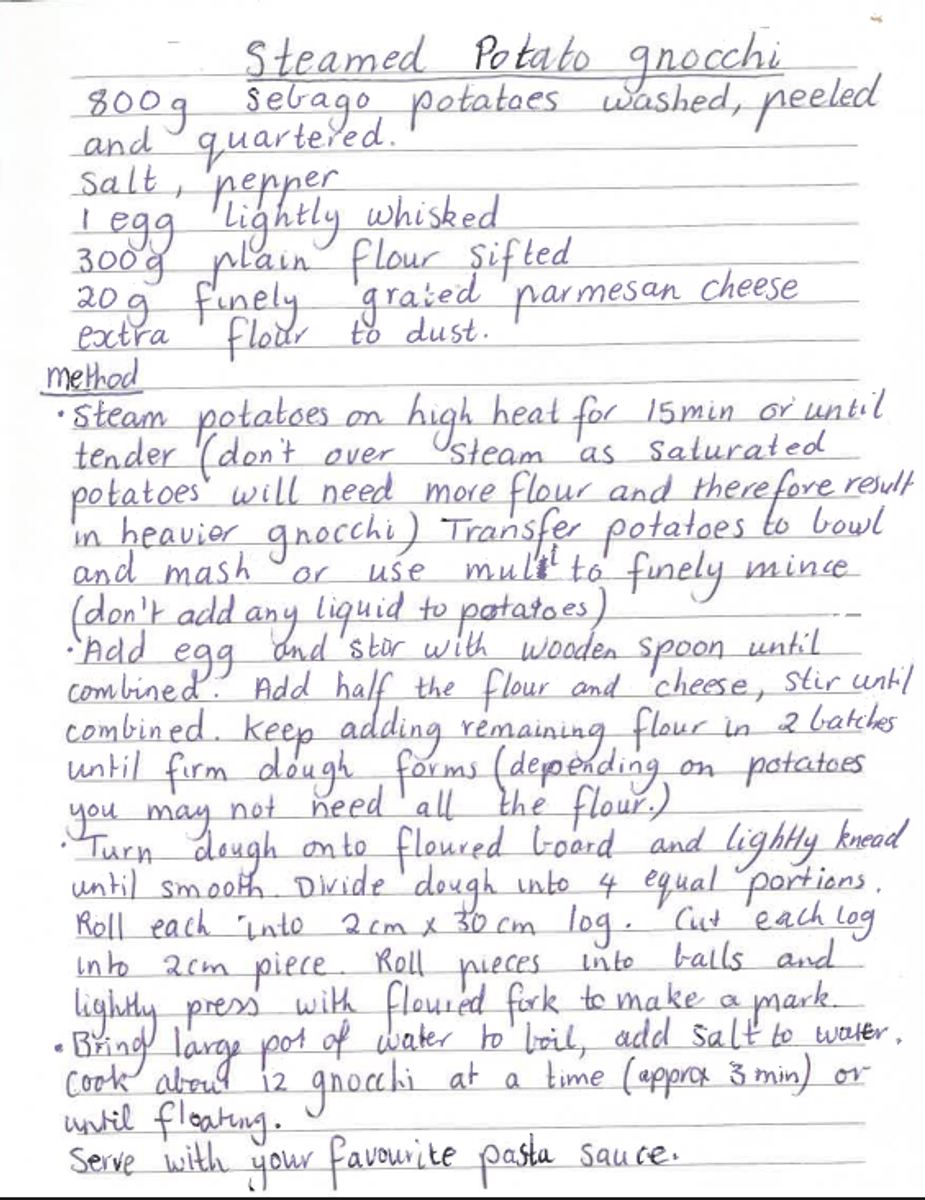 Steamed Potato gnocchi
800g Sebago potatoes washed, peeled
and quartered.
Salt, pepper
1 egg lightly whisked
300g plain flour sifted
20g finely grated parmesan cheese
extra flour to dust.
Method
· Steam potatoes on high heat for 15min or until
tender (don't over steam as saturated
potatoes will need more flour and therefore result
in heavier gnocchi) Transfer potatoes to bowl
and mash or use multi to finely mince
(don't add any liquid to potatoes)
· Add egg and stir with wooden spoon until
combined. Add half the flour and cheese, stir until
combined. Keep adding remaining flour in 2 batches
until firm dough forms (depending on potatoes
you may not need all the flour.)
· Turn dough onto floured board and lightly knead
until smooth. Divide dough into 4 equal portions.
Roll each into 2cm x 30cm log. Cut each log
into 2cm piece. Roll pieces into balls and
lightly press with floured fork to make a mark.
• Bring large pot of water to boil, add salt to water.
Cook about 12 gnocchi at a time (approx 3 min) or
until floating.
Serve with your favourite pasta sauce.